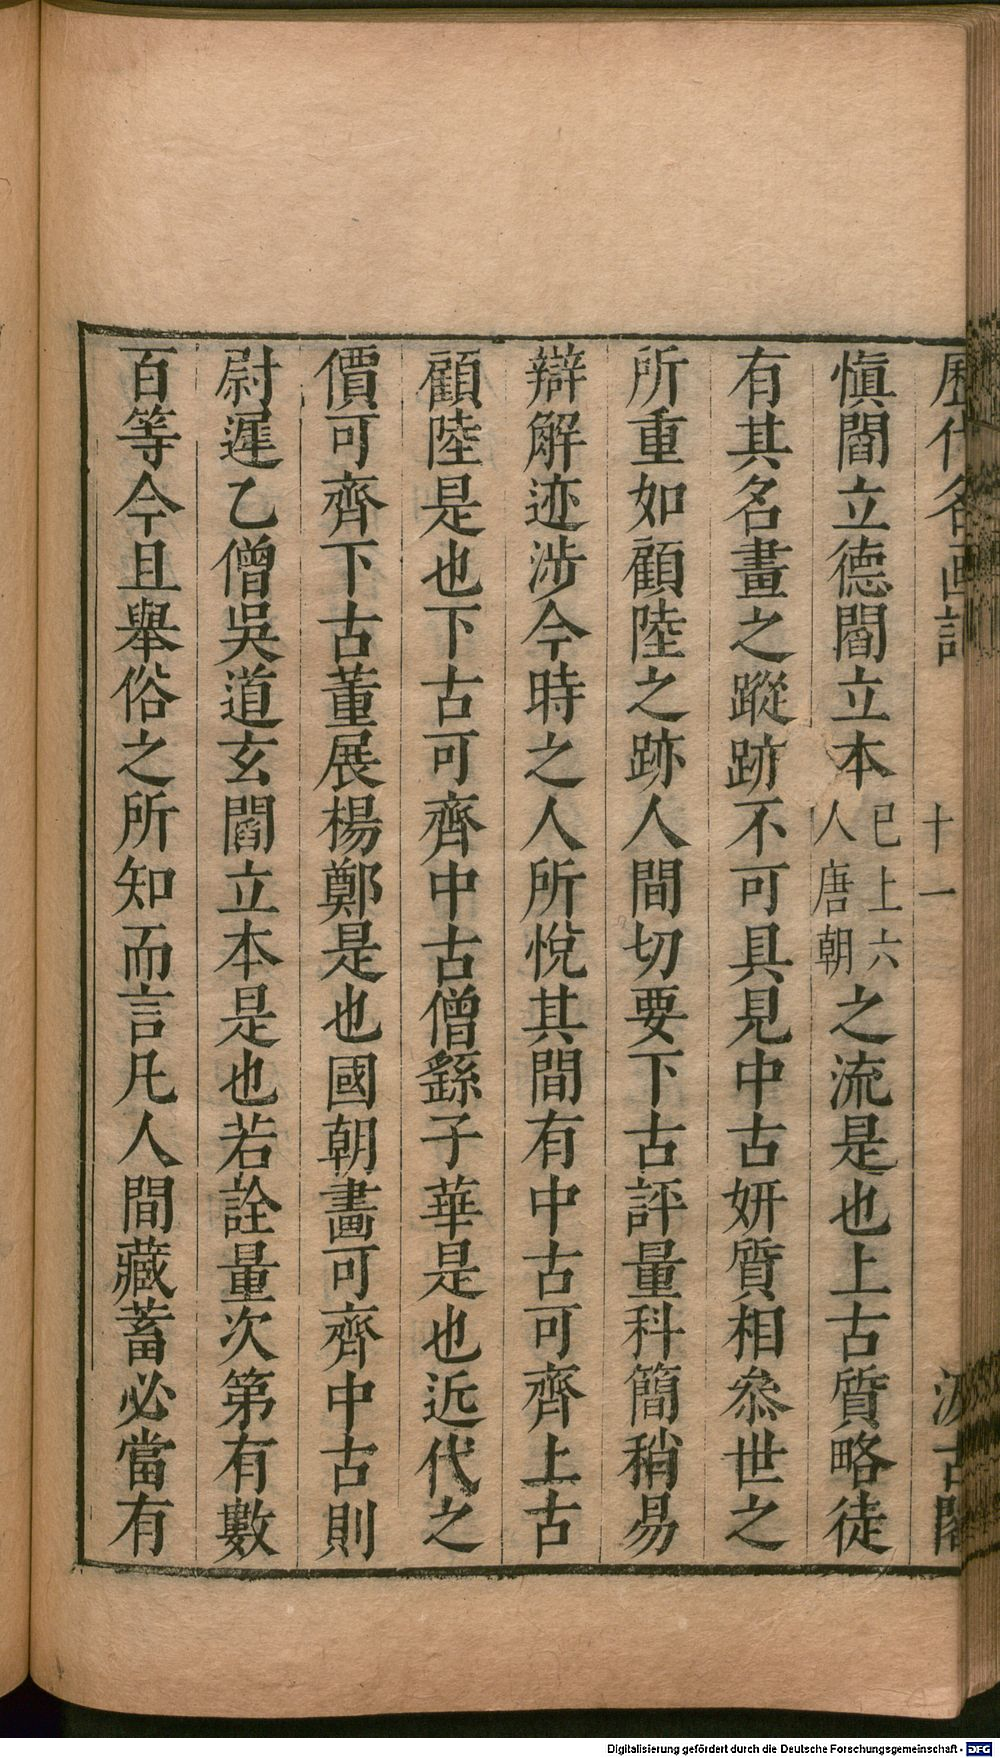 歷代名画記 十一 汲古閣
愼閻立德閻立本已上六人唐朝之流是也上古質略徒
有其名畫之蹤跡不可具見中古妍質相叅世之
所重如顧陸之跡人間切要下古評量科簡稍易
辯解迹涉今時之人所悅其間有中古可齊上古
顧陸是也下古可齊中古僧繇子華是也近代之
價可齊下古董展楊鄭是也國朝畫可齊中古則
尉遲乙僧吳道玄閻立本是也若詮量次第有數
百等今且舉俗之所知而言凡人間藏蓄必當有
Digitalisierung gefördert durch die Deutsche Forschungsgemeinschaft - DFG